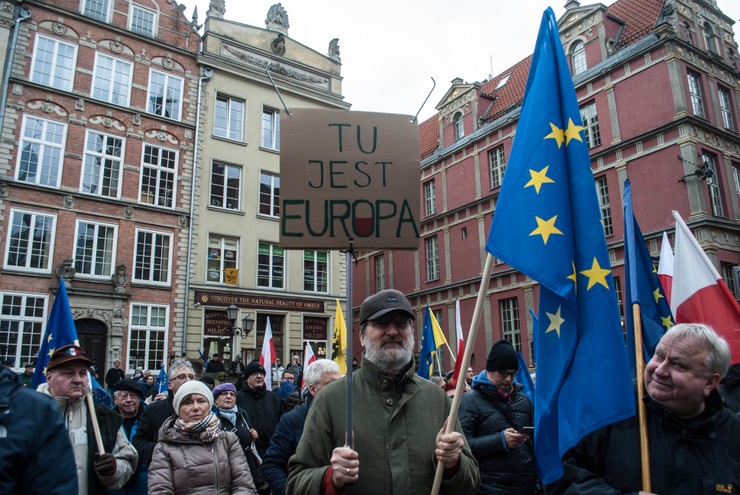 TU
JEST
EUROPA
DISCOVER THE NATURAL BEAUTY OF AMBER